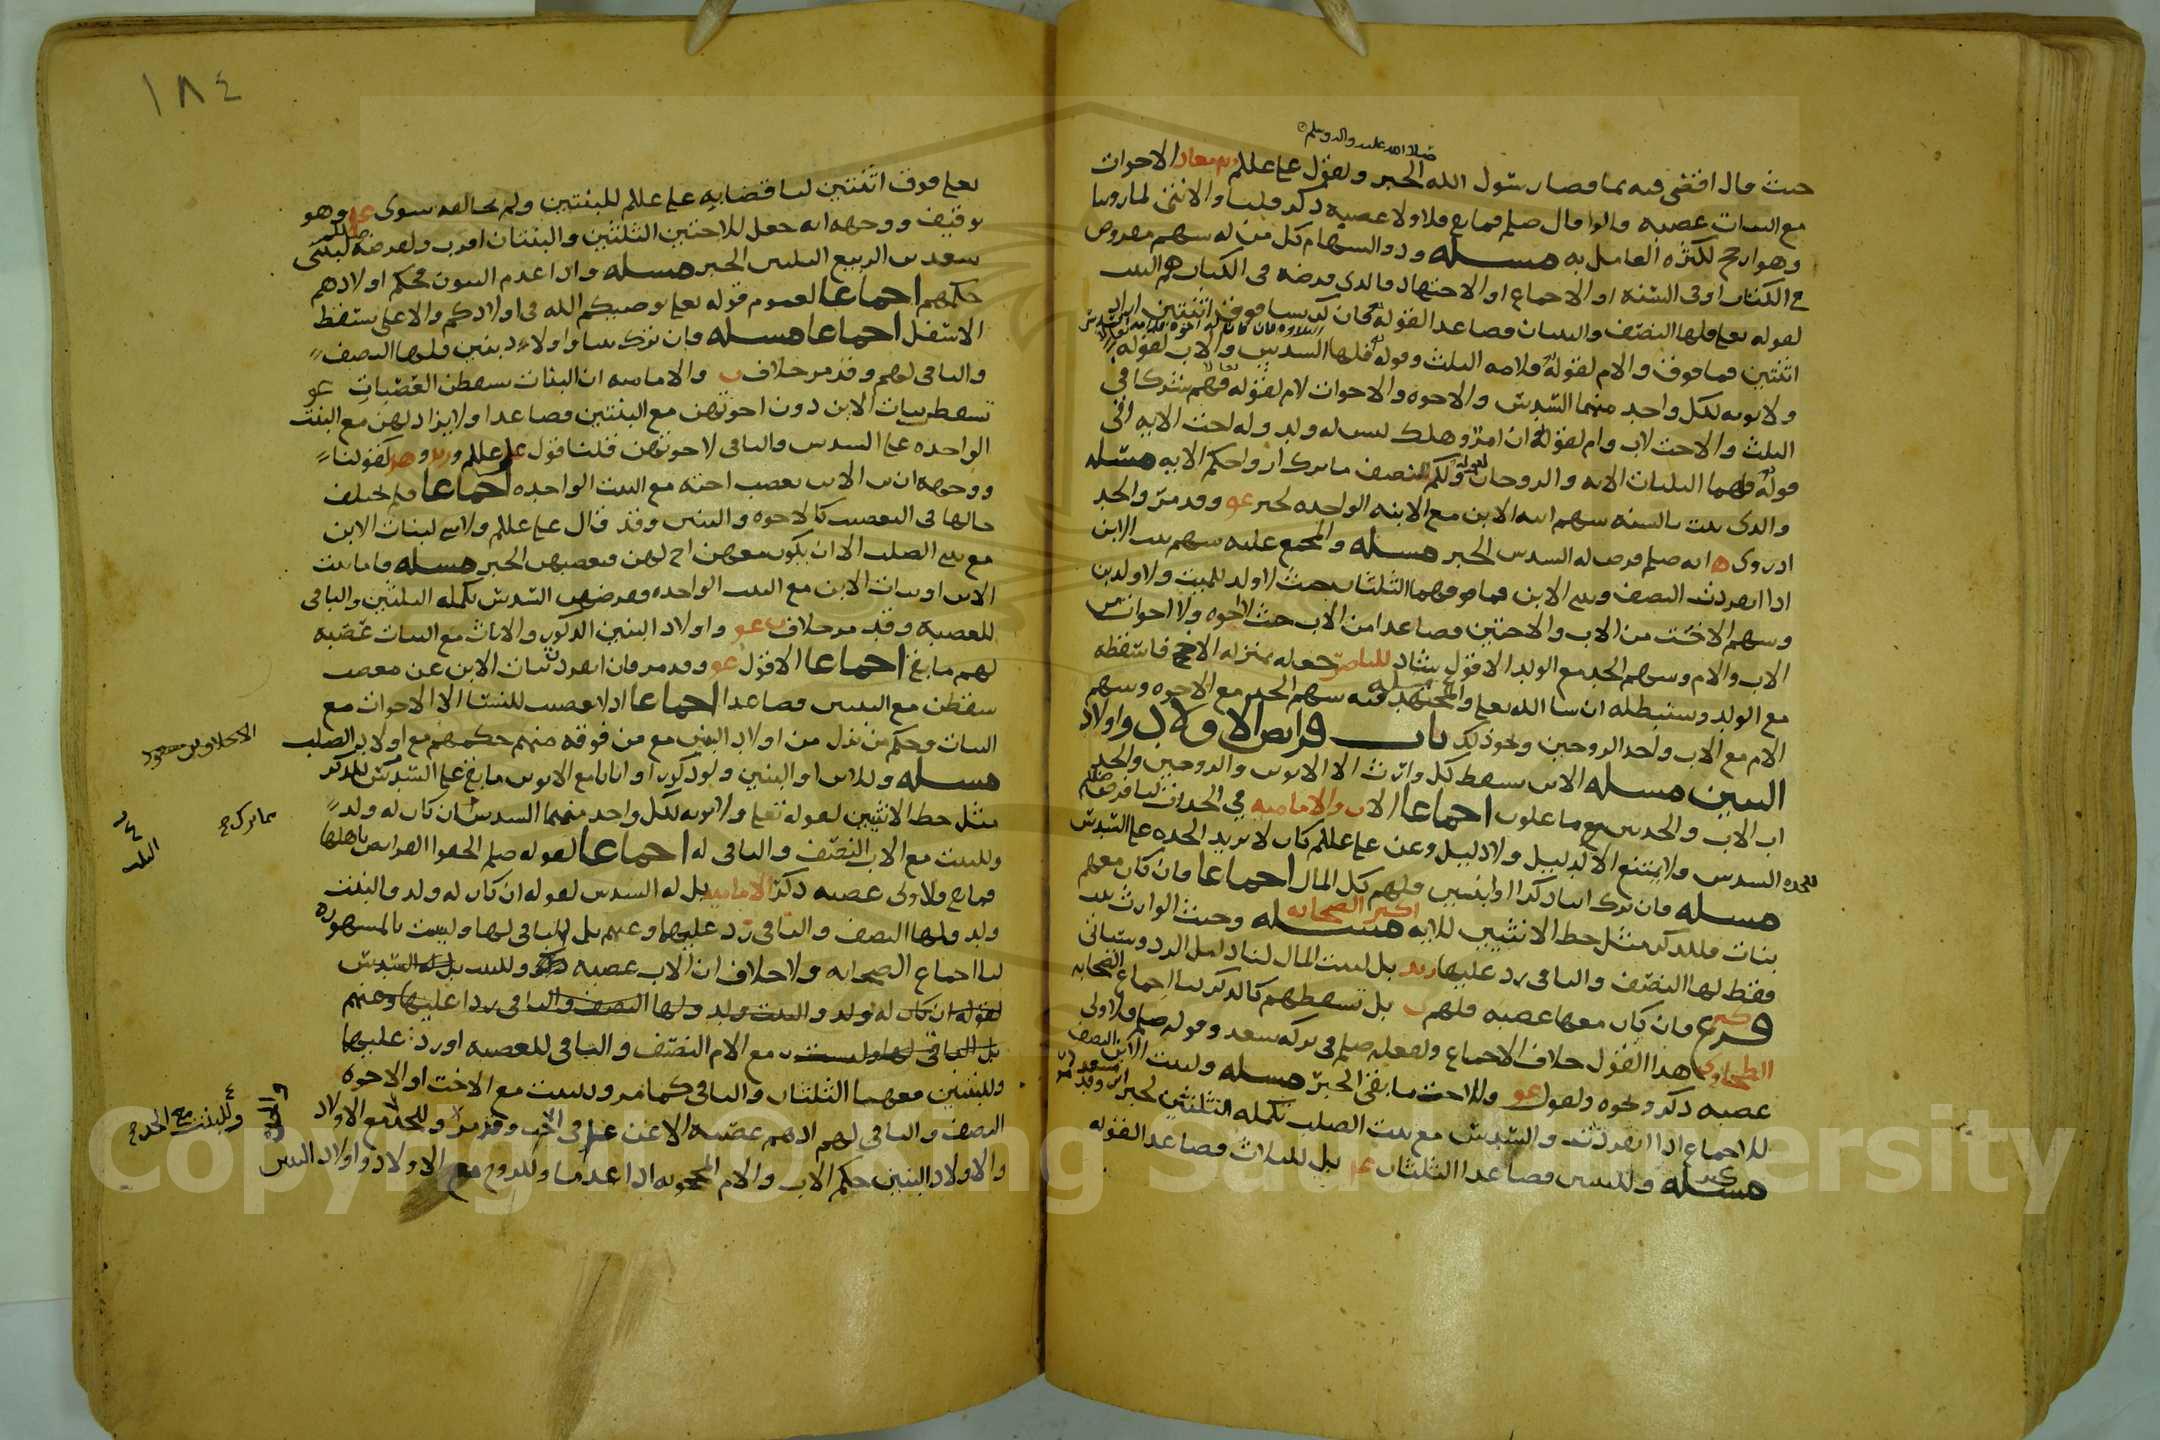 صلى الله عليه واله وسلم
حيث قال اقضي فيه بما قضا رسول الله الخبر ولقول علي عللم ومعاذ الاخوات
مع البنات عصبه قالوا قال صلم فما بقي فلاولا عصبه ذكر قلنا والانثى لما روينا
وهو ارجح لكثره العامل به مسله وذو السهام كل من له سهم مفروض
في الكتاب او في السنه او الاجماع او الاجتهاد فالذي فرضه في الكتاب هم البنت
لقوله تعلى فلها النصف والبنتان فصاعدا لقوله فان كن نسا فوق اثنتين
اثنتين فما فوق والام لقوله فلامه الثلث وقوله فلها السدس والاب لقوله
ولابويه لكل واحد منهما السدس والاخوه والاخوات لام لقوله فهم شركا في
الثلث والاخت لاب وام لقوله ان امرؤ هلك ليس له ولد وله اخت الايه الى
قوله فلهما الثلثان الايه والزوجان لقوله ولكم نصف ما ترك ازواجكم الايه مسله
والذي ثبت بالسنه سهم ابنة الابن مع الابنه الواحده لخبر عو وقد مر والجد
اذ روي ه انه صلم فرض له السدس الخبر مسله والمجمع عليه سهم بنت الابن
اذا انفردت النصف وبنتي الابن فما فوقهما الثلثان حيث لا ولد للميت ولا ولد ابن
وسهم الاخت من الاب والاختين فصاعدا من الاب حيث لا اخوه ولا اخوات من
الاب والام وسهم الجد مع الولد الا قول شاذ للناصر جعله بمنزله الاخ فاسقطه
مع الولد وسنبطله ان شا الله تعلى والمجتهد فيه سهم الجد مع الاخوه وسهم
الام مع الاب واحد الزوجين ونحو ذلك باب فرايض الاولاد واولاد
البنين مسله الابن يسقط كل وارث الا الابوين والزوجين والجد
اب الاب والجدتين ما علون اجماعا الا ن والاماميه في الجدات لنا فرض صلم
للجده السدس ولا يمتنع الا لدليل ولا دليل وعن علي عللم كان لا يزيد الجده على السدس
مسله فان ترك ابنا ذكرا او ابنين فلهم كل المال اجماعا فان كان معهم
بنات فللذكر مثل حظ الانثيين للايه مسله اكثر الصحابه وحيث الوارث بنت
فقط لها النصف والباقي رد عليها زيد بل لبيت المال لنا دليل الرد وسياتي
فرع كثير فان كان معها عصبه فلهم ن بل تسقطهم كالذكر لنا اجماع الصحابه
الطحاوي هذا القول خلاف الاجماع ولفعله صلم في تركه سعد وقوله صلم فلاولى
عصبه ذكر ونحوه ولقول عو وللاخت ما بقي الخبر مسله ولبنت الابن النصف
للاجماع اذا انفردت والسدس مع بنت الصلب تكمله الثلثين لخبر ابن مسعود وقد مر
مسله كثير وللبنتين فصاعدا الثلثان ع بل للثلاث فصاعدا لقوله
١٨٤
تعلى فوق اثنتين لنا قضا به علي عللم للبنتين ولم يخالفه سوى ع وهو
توقيف ووجهه انه جعل للاختين الثلثين والبنتان اقرب ولفرضه صلم لبنتي
سعد بن الربيع الثلثين الخبر مسله واذا عدم البنون فحكم اولادهم
حكمهم اجماعا لعموم قوله تعلى يوصيكم الله في اولادكم والاعلى يسقط
الاسفل اجماعا مسله فان ترك بنتا واولاد بنين فلها النصف
والباقي لهم وقد مر خلاف ن والاماميه ان البنات يسقطن العصبات عو
تسقط بنات الابن دون اخوتهن مع البنتين فصاعدا ولا يزاد لهن مع البنت
الواحده على السدس والباقي لاخوتهن قلنا قول علي عللم وزيد وهو كقولنا
ووجهه ان بن الابن يعصب اخته مع البنت الواحده اجماعا فلم يختلف
حالها في التعصيب كالاخوه والبنين وقد قال علي عللم ولا شي لبنات الابن
مع بنتي الصلب الا ان يكون معهن اخ لهن فيعصبهن الخبر مسله فاما بنت
الابن او بنات الابن مع البنت الواحده ففرضهن السدس تكمله الثلثين والباقي
للعصبه وقد مر خلاف ن عو واولاد البنين الذكور والاناث مع البنات عصبه
لهم ما بقي اجماعا الا قول عو وقد مر فان انفردت بنات الابن عن معصب
سقطن مع البنتين فصاعدا اجماعا اذ لا تعصيب للنسا الا الاخوات مع
البنات وحكم من نزل من اولاد البنين مع من فوقه منهم حكمهم مع اولاد الصلب
الا خلاف بن مسعود
مسله وللابن او البنين ولو ذكورا او اناثا مع الابوين ما بقي على السدس للذكر
مثل حظ الانثيين لقوله تعلى ولابويه لكل واحد منهما السدس ان كان له ولد
مما ترك
وللبنت مع الاب النصف والباقي له اجماعا لقوله صلم الحقوا الفرايض باهلها
فما بقي فلاولى عصبه ذكر الاماميه بل له السدس لقوله ان كان له ولد والبنت
ولد ولها النصف والباقي رد عليهما وعنهم بل الباقي لها وليست بالمشهوره
لنا اجماع الصحابه ولا خلاف ان الاب عصبه وللبنت بل له السدس
لقوله ان كان له ولد والبنت ولد ولها النصف والباقي ردا عليها وعنهم
بل الباقي لها وليست مع الام النصف والباقي للعصبه او رد عليهما
وللبنتين معهما الثلثان والباقي كما مر وللبنت مع الاخت او الاخوه
النصف والباقي لهم اذ هم عصبه الا عن ع في الاخت وقد مر وللجد مع الاولاد
وللبنت مع الجد
والاولاد البنين حكم الاب والام المحجوبه اذا عدما وللزوج مع الاولاد واولاد البنين